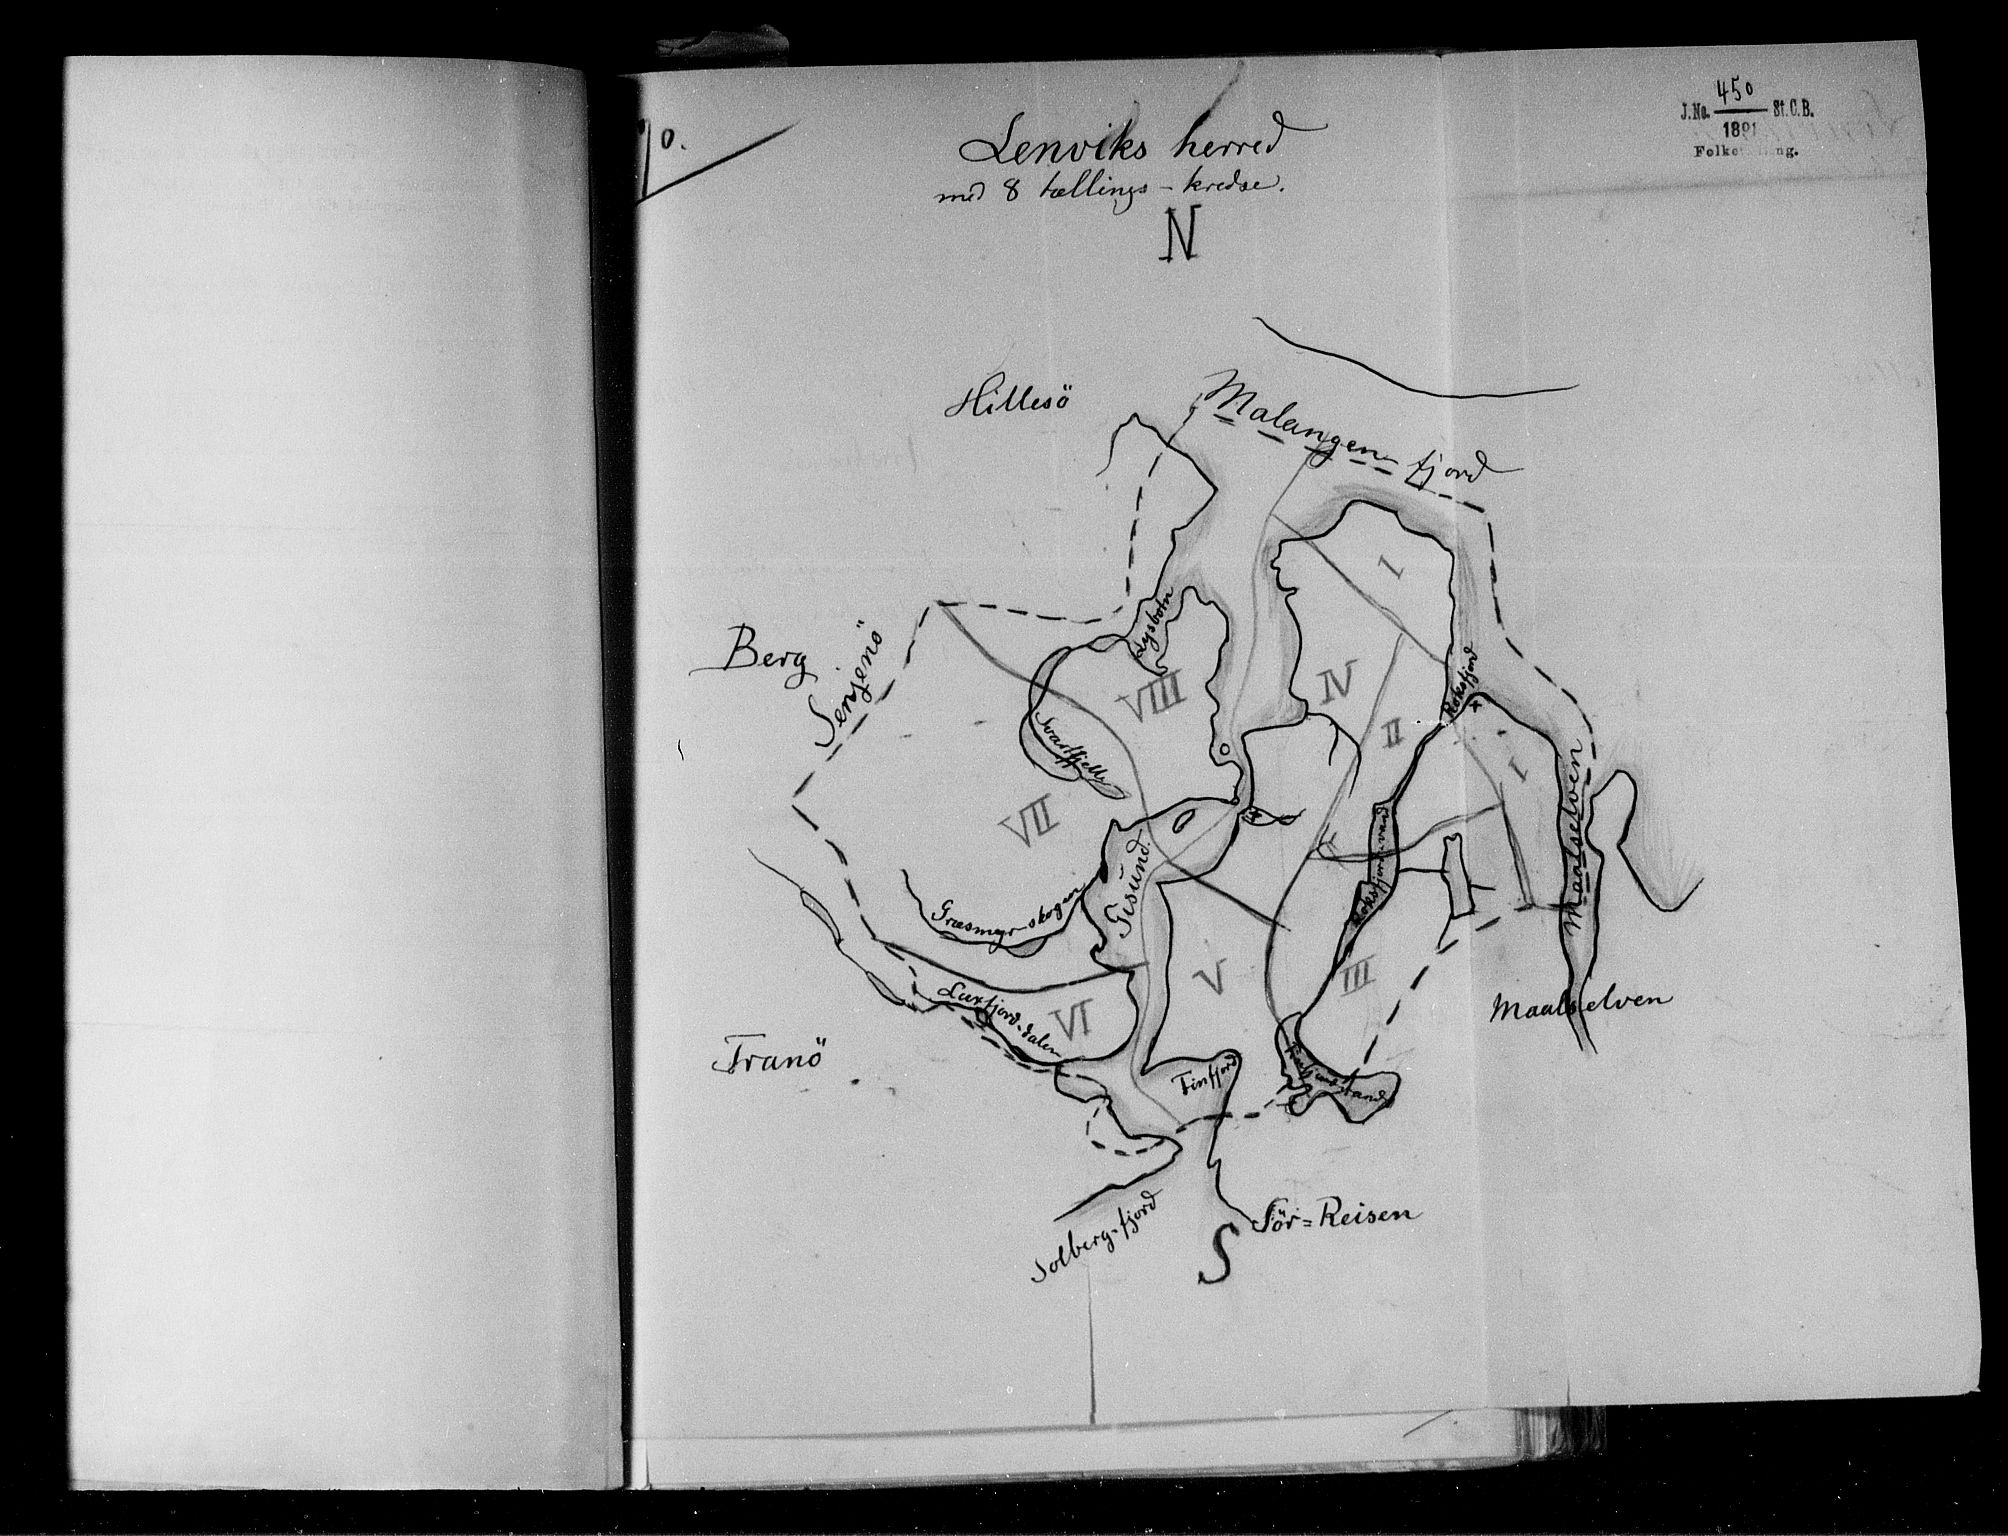 70.
J.No. 450 St.C.B.
1891
Lenviks herred
med 8 tællings-kredse.
N
Hillesö
Malangen fjord
Berg
Senjenö
Lysbotn
I
Roksfjord
VIII
IV
II
Svartfjell
I
Maalselven
VII
Gisund.
Roksfjordvand
Græsmyr-skogen
V
III
Laxfjord-dalen
VI
Maalselven
Tranö
Finfjord
Solberg-fjord
Sör=Reisen
S